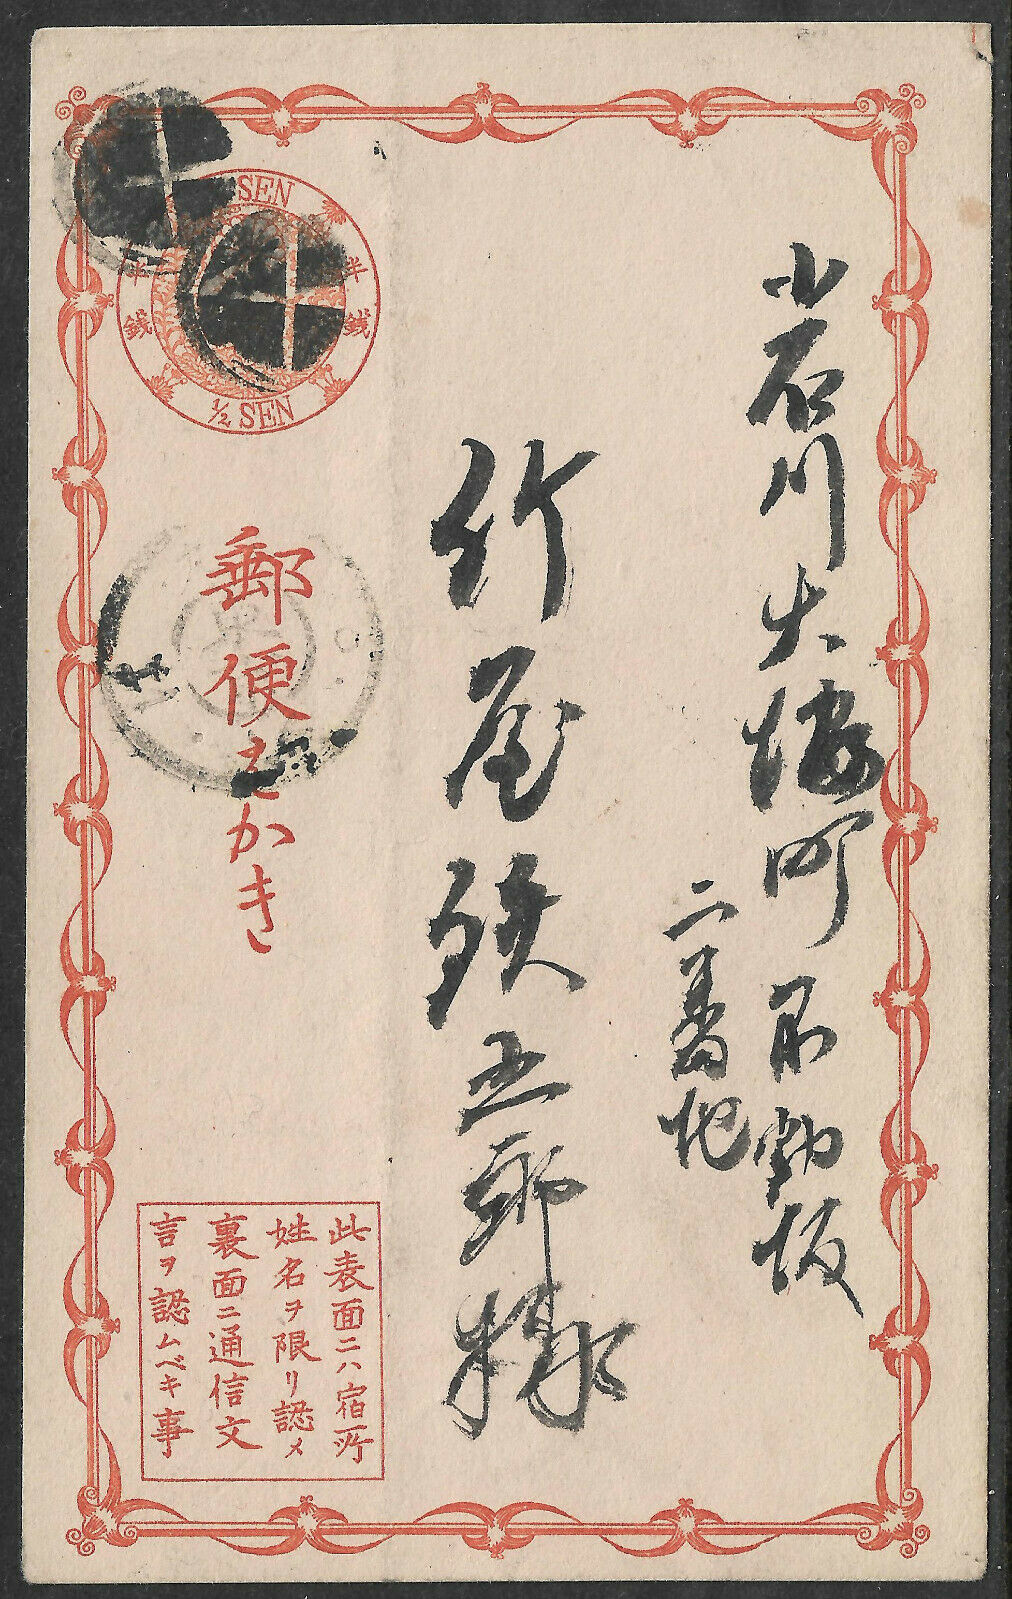 小石川大塚町不動坂
二番地
竹屋鉄五郎様
SEN
半銭
半銭
1/2 SEN
郵便はかき
此表面ニハ宿所
姓名ヲ限リ認メ
裏面ニ通信文
言ヲ認ムベキ事